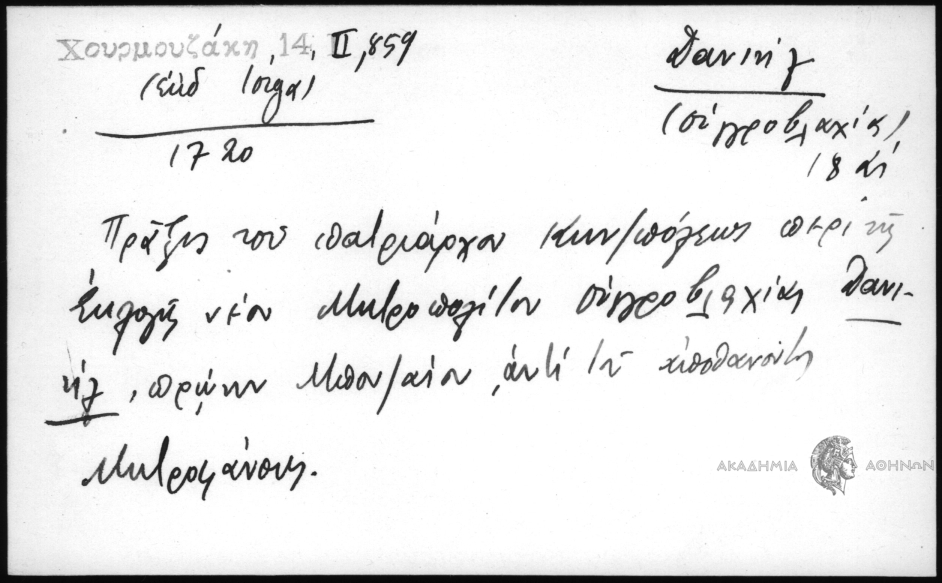 Χουρμουζάκη 14, II, 859
Δανιήλ
1720
(Οὐγγροβλαχίας)
18 αἰ
Πρᾶξις τοῦ πατριάρχου Κων/πόλεως περὶ τῆς
ἐκλογῆς νέου Μητροπολίτου Οὐγγροβλαχίας Δανι-
ήλ, πρώην Μπουζαίου, ἀντὶ τοῦ ἀποθανόντος
Μητροφάνους.
ΑΚΑΔΗΜΙΑ ΑΘΗΝΩΝ